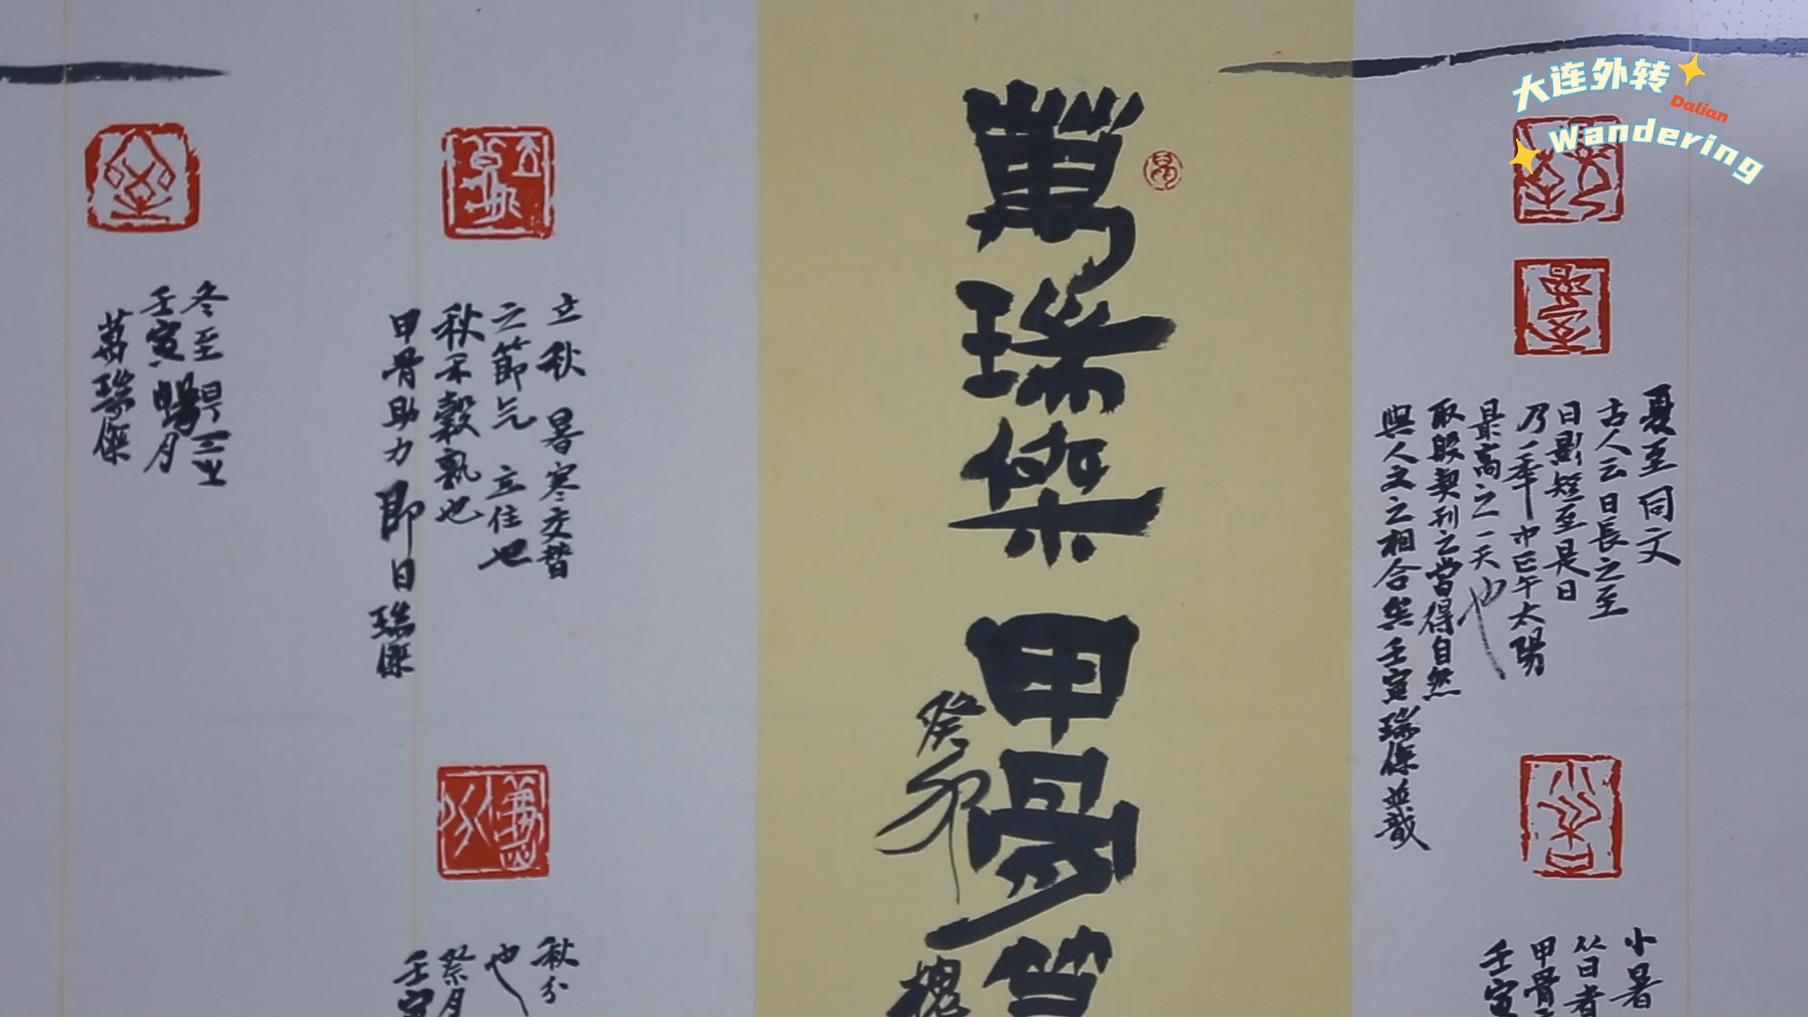 大连外转
Dalian
Wandering
夏至同文
古人云日長之至
日影短至是日
乃一年中正午太陽
最高之一天也
取殷契刊之當得自然
與人文之相合矣壬寅瑞傑並識
小暑
甲骨
壬寅
萬瑞傑甲骨
癸卯
槐
立秋暑寒交替
之節气立住也
秋禾穀熟也
甲骨助力即日瑞傑
秋分
也
祭月
壬寅
冬至
壬寅暢月
萬瑞傑